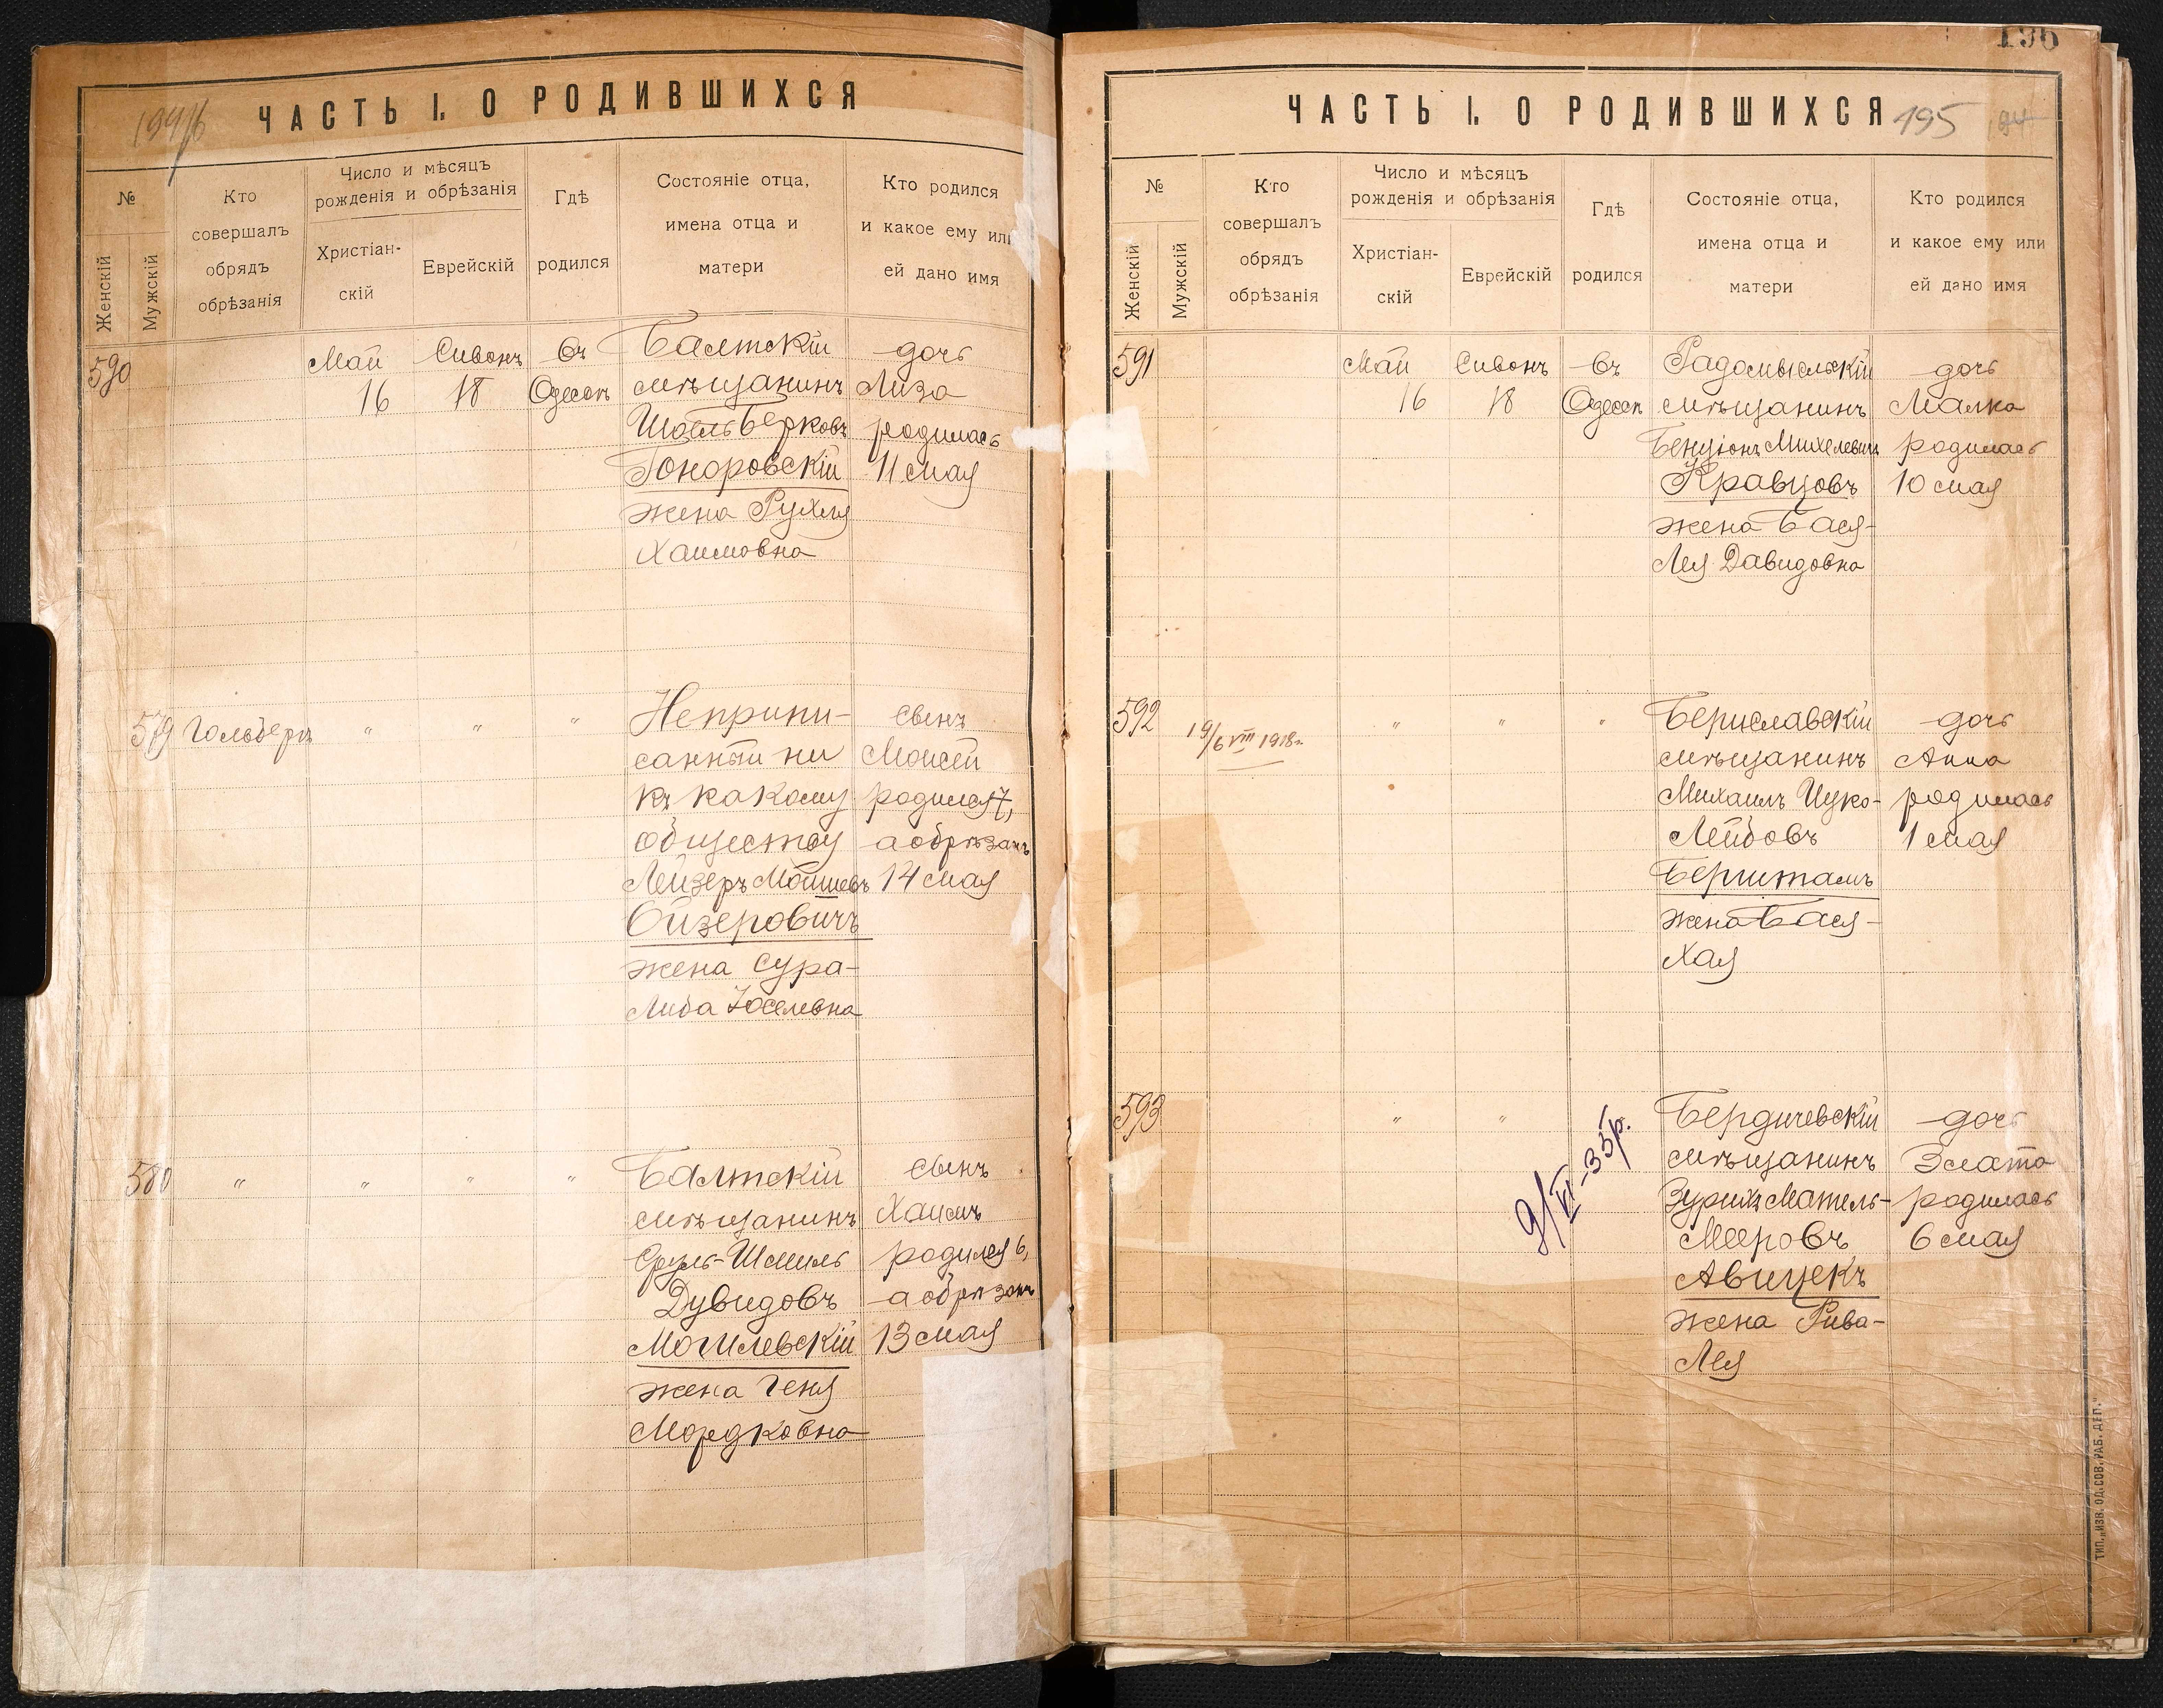 ЧАСТЬ I. О РОДИВШИХСЯ
№
Женскій
Мужскій
Кто
совершалъ
обрядъ
обрѣзанія
Число и мѣсяцъ
рожденія и обрѣзанія
Христіан-
скій
Еврейскій
Гдѣ
родился
Состояніе отца,
имена отца и
матери
Кто родился
и какое ему или
ей дано имя
590
Май
16
Сивонъ
18
Въ
Одессѣ
Балтскій
мѣщанинъ
Шоель Берковъ
Гоноровскій
жена Рухля
Хаимовна
дочь
Лиза
родилась
11 мая
579
Гольберг
"
"
"
Неприпи-
санный ни
къ какому
обществу
Лейзеръ Мошковъ
Ойзеровичъ
жена Сура-
Либа Іоселевна
сынъ
Моисей
родился 7,
а обрѣзанъ
14 мая
580
"
"
"
"
Балтскій
мѣщанинъ
Сруль-Шмиль
Дувидовъ
Могилевскій
жена Геня
Мордковна
сынъ
Хаимъ
родился 6,
а обрѣзанъ
13 мая
196
ЧАСТЬ I. О РОДИВШИХСЯ
195
194
№
Женскій
Мужскій
Кто
совершалъ
обрядъ
обрѣзанія
Число и мѣсяцъ
рожденія и обрѣзанія
Христіан-
скій
Еврейскій
Гдѣ
родился
Состояніе отца,
имена отца и
матери
Кто родился
и какое ему или
ей дано имя
591
Май
16
Сивонъ
18
Въ
Одессѣ
Радомысльскій
мѣщанинъ
Бенціонъ Михелевичъ
Кравцовъ
жена Бася-
Лея Давидовна
дочь
Малка
родилась
10 мая
592
19/6 VIII 1918г.
"
"
"
Бериславскій
мѣщанинъ
Михаилъ Ицко-
Лейбовъ
Бернштамъ
жена Бася-
Хая
дочь
Анна
родилась
1 мая
593
"
"
9/VI-35р.
Бердичевскій
мѣщанинъ
Мееровъ
Авицекъ
жена Рива-
Лея
дочь
Злата
родилась
6 мая
ТИП. „ИЗВ. ОД. СОВ. РАБ. ДЕП."